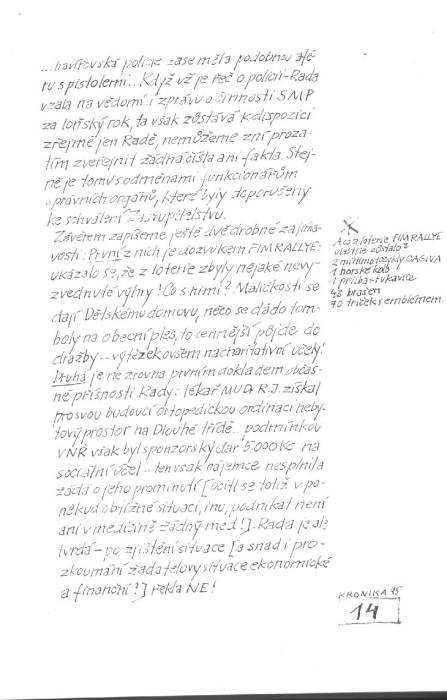 ...havířovská policie zase měla podobnou afé-
ru s pistolemi... Když už je řeč o policii - Rada
vzala na vědomí i zprávu o činnosti SMP
za loňský rok, ta však zůstává k dispozici
zřejmě jen Radě, nemůžeme z ní proza-
tím zveřejnit žádná čísla ani fakta. Stej-
ně je tomu s odměnami funkcionářům
správních orgánů, které byly doporučeny
ke schválení Zastupitelstvu.
Závěrem zapišeme ještě dvě drobné zajíma-
vosti: První z nich je dozvukem FIM RALLYE:
ukázalo se, že z loterie zbyly nějaké nevy-
zvednuté výhry! Co s nimi? Maličkosti se
dají Dětskému domovu, něco se dá do tom-
boly na obecní ples, to cennější půjde do
dražby... výtěžek ovšem na charitativní účely!
Druhá je ne zrovna prvním dokladem občas-
né přísnosti Rady: lékař MUDr R.J. získal
pro svou budoucí ortopedickou ordinaci neby-
tový prostor na Dlouhé třídě... podmínkou
VNŘ však byl sponzorský dar 5000 Kč na
sociální účel... ten však nájemce nesplnil a
žádá o jeho prominutí [ocitl se totiž v po-
někud obtížné situaci, inu, podnikat není
ani v medicíně žádný med!]. Rada je ale
tvrdá - po zjištění situace [a snad i pro-
zkoumání žadatelovy situace ekonomické
a finanční!] řekla NE!
A co z loterie FIM RALLYE
vlastně zůstalo?
2 minimotocykly CAGIVA
1 horské kolo
1 přilba + rukavice
43 brašen
70 triček s emblémem
KRONIKA 95
14